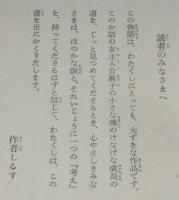 読者のみなさまへ
この物語は、わたくしにとっても、大すきな作品です。
このお話の女主人公葉子の小さな魂のけなげな成長の
道を、じっと見つめてくださるとき、心やさしきみな
さまは、ほのかな涙と、それいじょうに一つの『考え』
を、持ってくださるはずと信じて、わたくしは、この
書を世におくりだします。
作者しるす